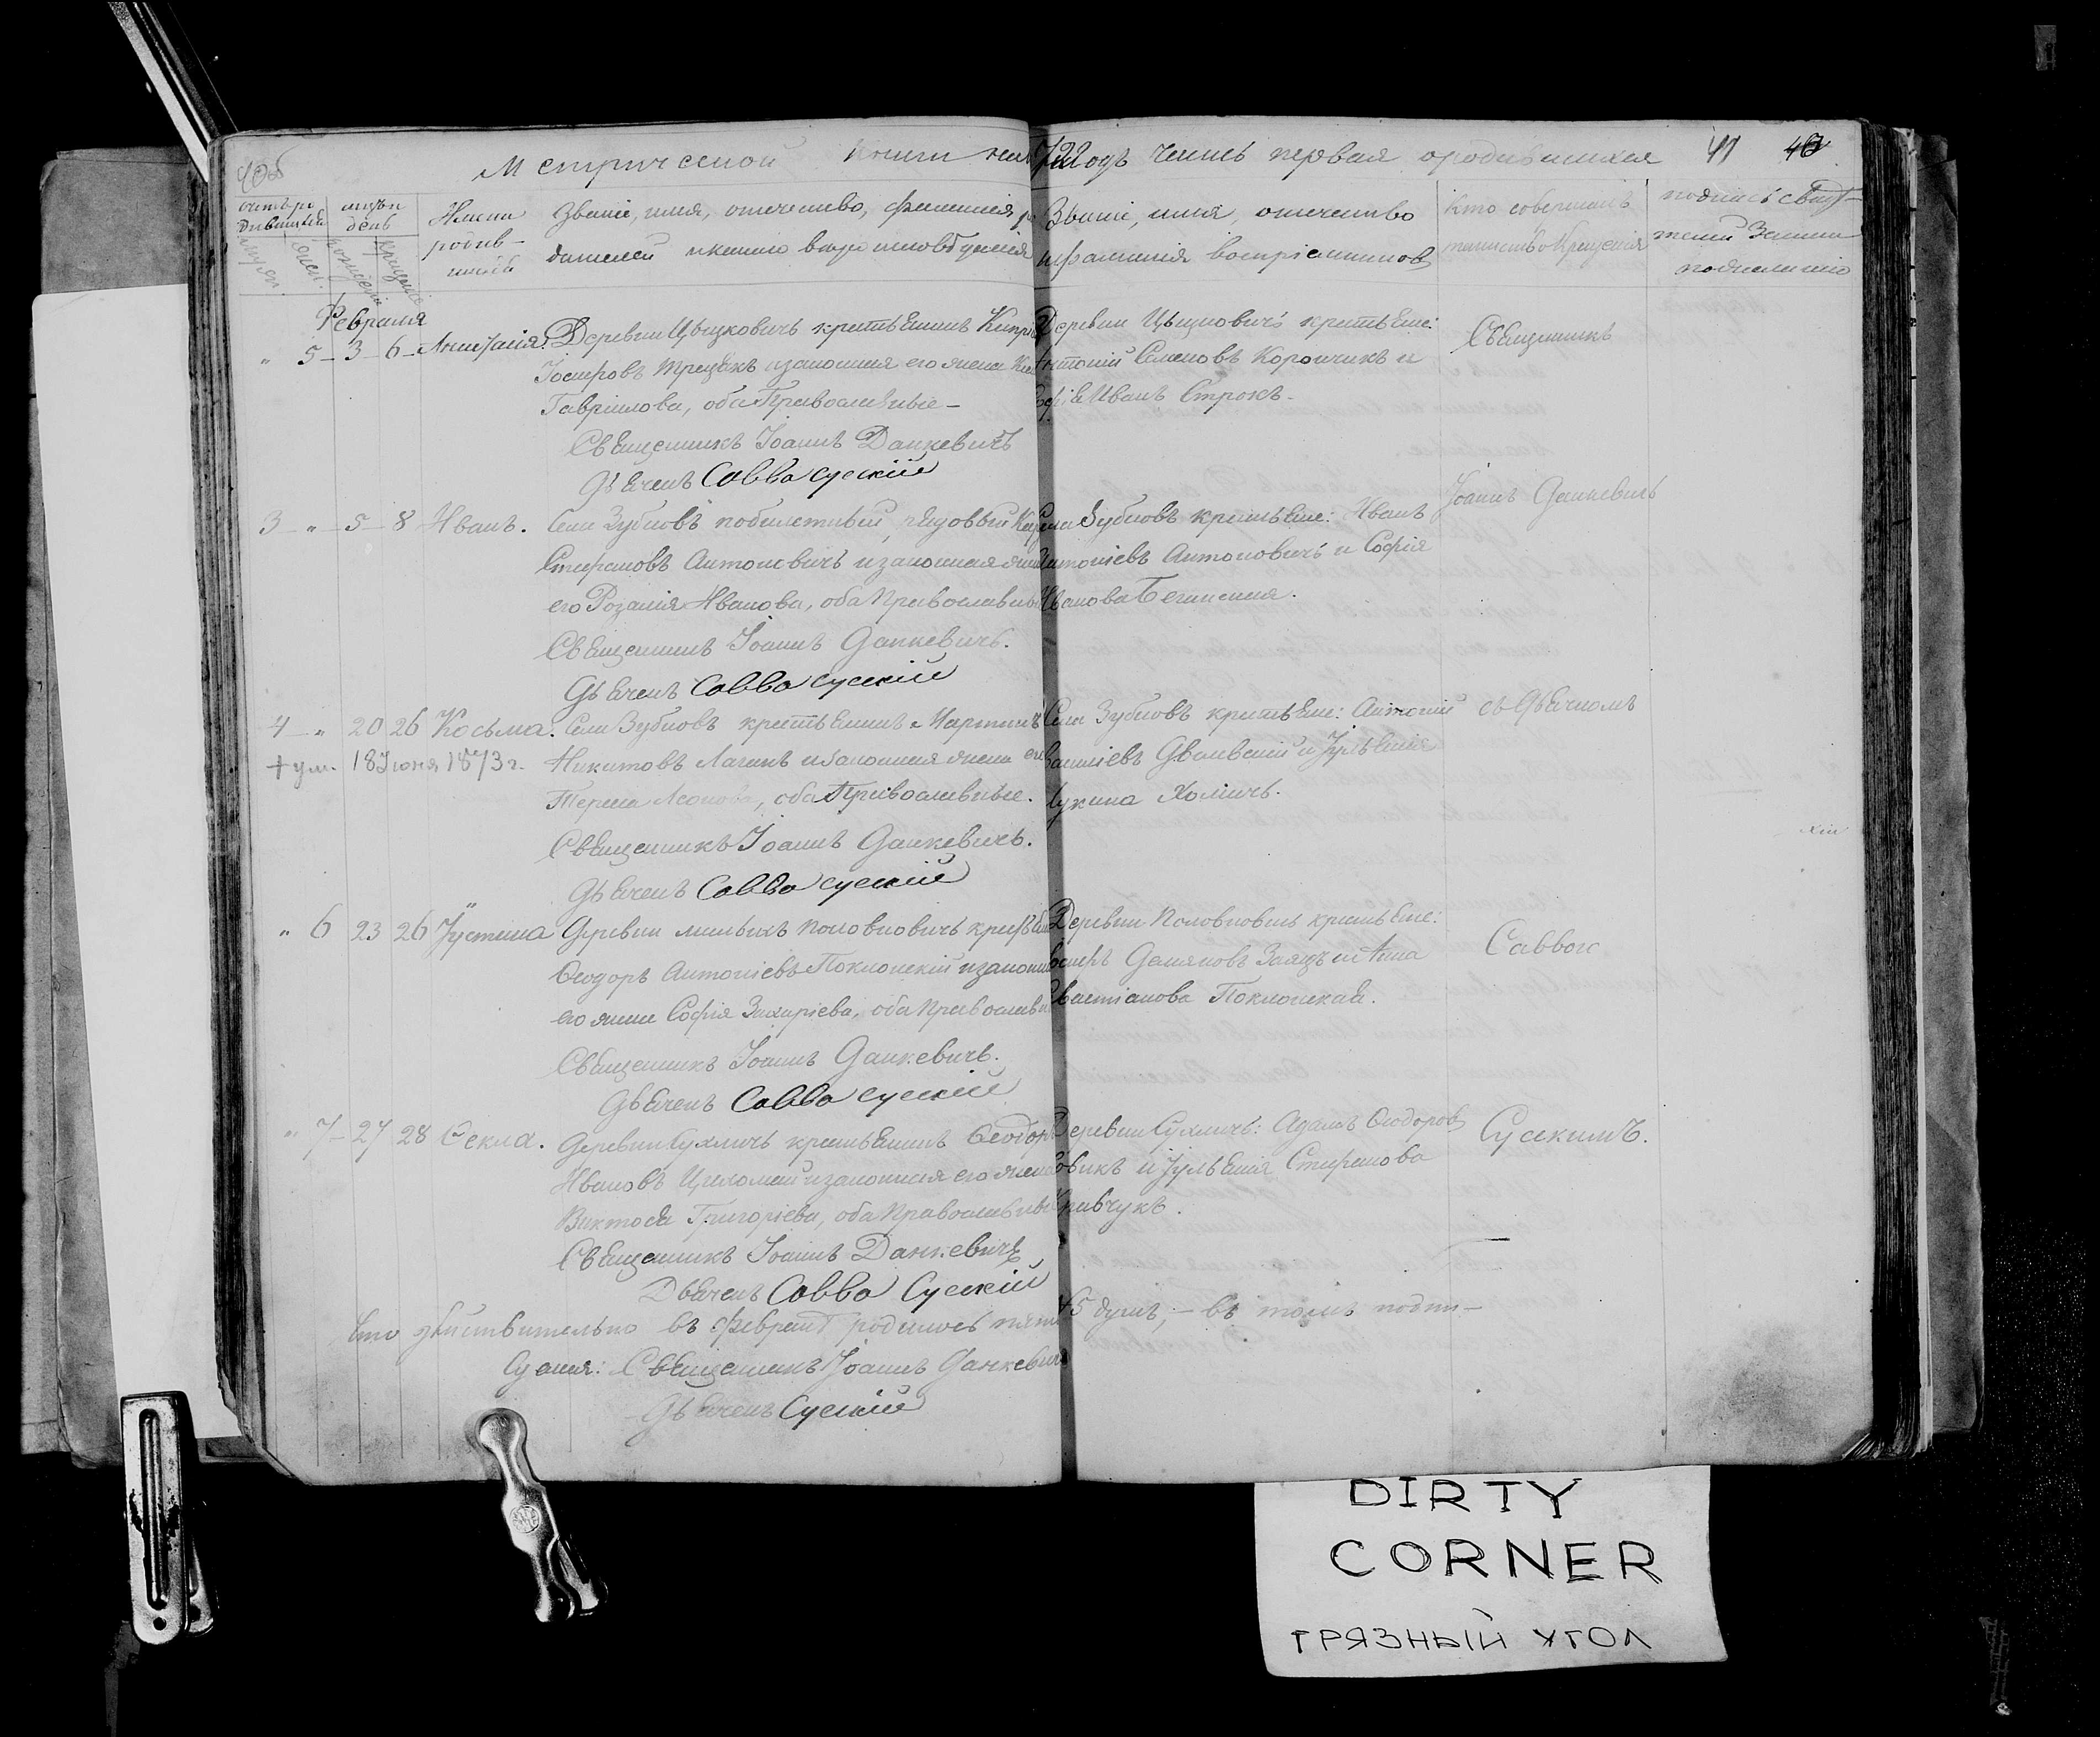 Метрической книги на 1872 годъ часть первая о родившихся 41
Счетъ родившихся
мѣсяцъ день
Имена родив-
шихся
Званіе, имя, отечество, фамилія ро
дителей и какого вѣроисповѣданія
Званіе, имя, отечество
и фамилія воспріемниковъ
Кто совершалъ
таинство Крещенія
подпись свидѣ-
телей записи
по желанію
Февраля
„ 5 3 6 Анастасія. Деревни Цѣцковичъ крестьянинъ
Іосифовъ Трецякъ и законная его жена
Гавріилова, оба Православные
Священникъ Іоаннъ Данкевичъ
Дьячекъ Савва Сускій
Деревни Цѣцковичъ крестьяне:
Антоній Семеновъ Корончикъ и
Иванъ Строкъ.
Священникъ
3 „ 5 8 Иванъ. Села Зубковъ побилетный рядовый
Стефановъ Антоновичъ и законная жена
его Розалія Иванова, оба Православные
Священникъ Іоаннъ Данкевичъ.
Дьячекъ Савва Сускій
Села Зубковъ крестьяне: Иванъ
Антоніевъ Антоновичъ и Софія
Иванова
Іоаннъ Данкевичъ
4 „ 20 26 Косьма. Села Зубковъ крестьянинъ Мартинъ
+ ум. 18 Іюня 1873 г. Никитовъ Лагинъ и законная жена его
Леонова, оба Православные.
Священникъ Іоаннъ Данкевичъ.
Дьячекъ Савва Сускій
Села Зубковъ крестьяне: Антоній
Василіевъ и Іуліанія
Лукина Хомичъ.
съ Дьячкомъ
„ 6 23 26 Іустина Деревни Половковичъ крестьян
Ѳеодоръ Антоніевъ Поклонскій и законн
его жена Софія Захаріева, оба Православн
Священникъ Іоаннъ Данкевичъ.
Дьячекъ Савва Сускій
Деревни Половковичъ крестьяне:
Іосифъ Демяновъ Заяцъ и Анна
Севастіанова Поклонская.
Саввою
„ 7 27 28 Ѳекла. Деревни Сухличъ крестьянинъ Ѳеодоръ
Ивановъ и законная его жена
Виктося Григоріева, оба Православные
Священникъ Іоаннъ Данкевичъ
Дьячекъ Савва Сускій
Деревни Сухличъ: Адамъ Ѳеодоровъ
и Іуліанія Стефанова
Кравчукъ.
Сускимъ.
Что дѣйствительно въ февралѣ родилось пять 5 душъ; – въ томъ подпи-
суемся: Священникъ Іоаннъ Данкевичъ
Дьячекъ Сускій
DIRTY
CORNER
ГРЯЗНЫЙ УГОЛ